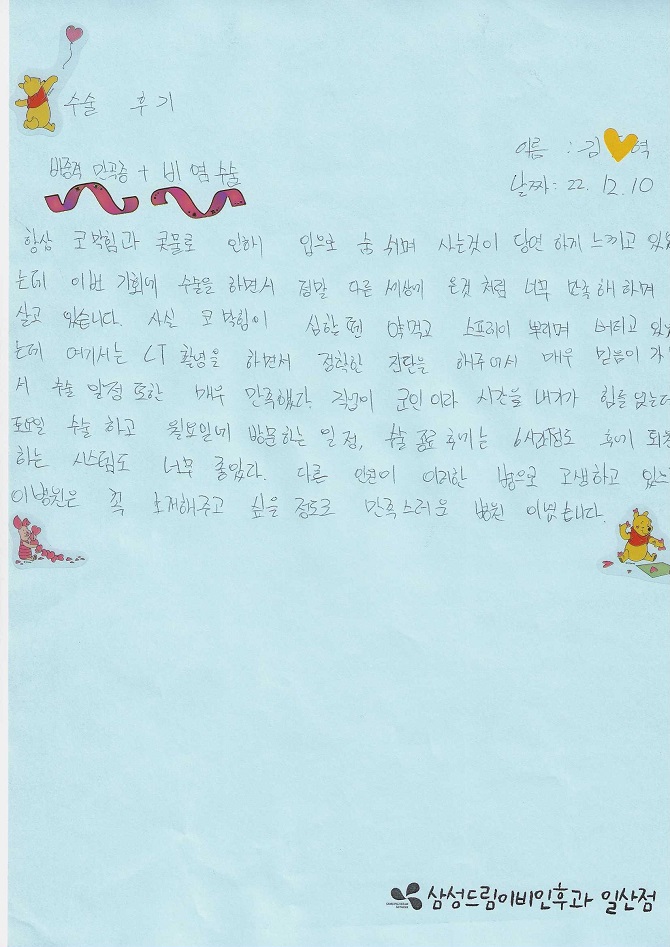 수술 후기
이름 : 김 혁
비중격 만곡증 + 비염수술
날짜 : 22. 12. 10
항상 코막힘과 콧물로 인해 입으로 숨 쉬며 사는것이 당연 하게 느끼고 있었
는데 이번 기회에 수술을 하면서 정말 다른 세상에 온것 처럼 너무 만족해 하며
살고 있습니다. 사실 코막힘이 심할땐 약먹고 스프레이 뿌리며 버티고 있었
는데 여기서는 CT 촬영을 하면서 정확한 진단을 해주어서 매우 믿음이 가
서 수술 일정 또한 매우 만족했다. 직업이 군인 이라 시간을 내기가 힘들었는데
토요일 수술 하고 월요일에 방문하는 일정, 수술 종료 후에는 6시간정도 후에 퇴원
하는 시스템도 너무 좋았다. 다른 인원이 이러한 병으로 고생하고 있으
이병원은 꼭 소개해주고 싶을 정도로 만족스러운 병원 이였습니다.
삼성드림이비인후과 일산점